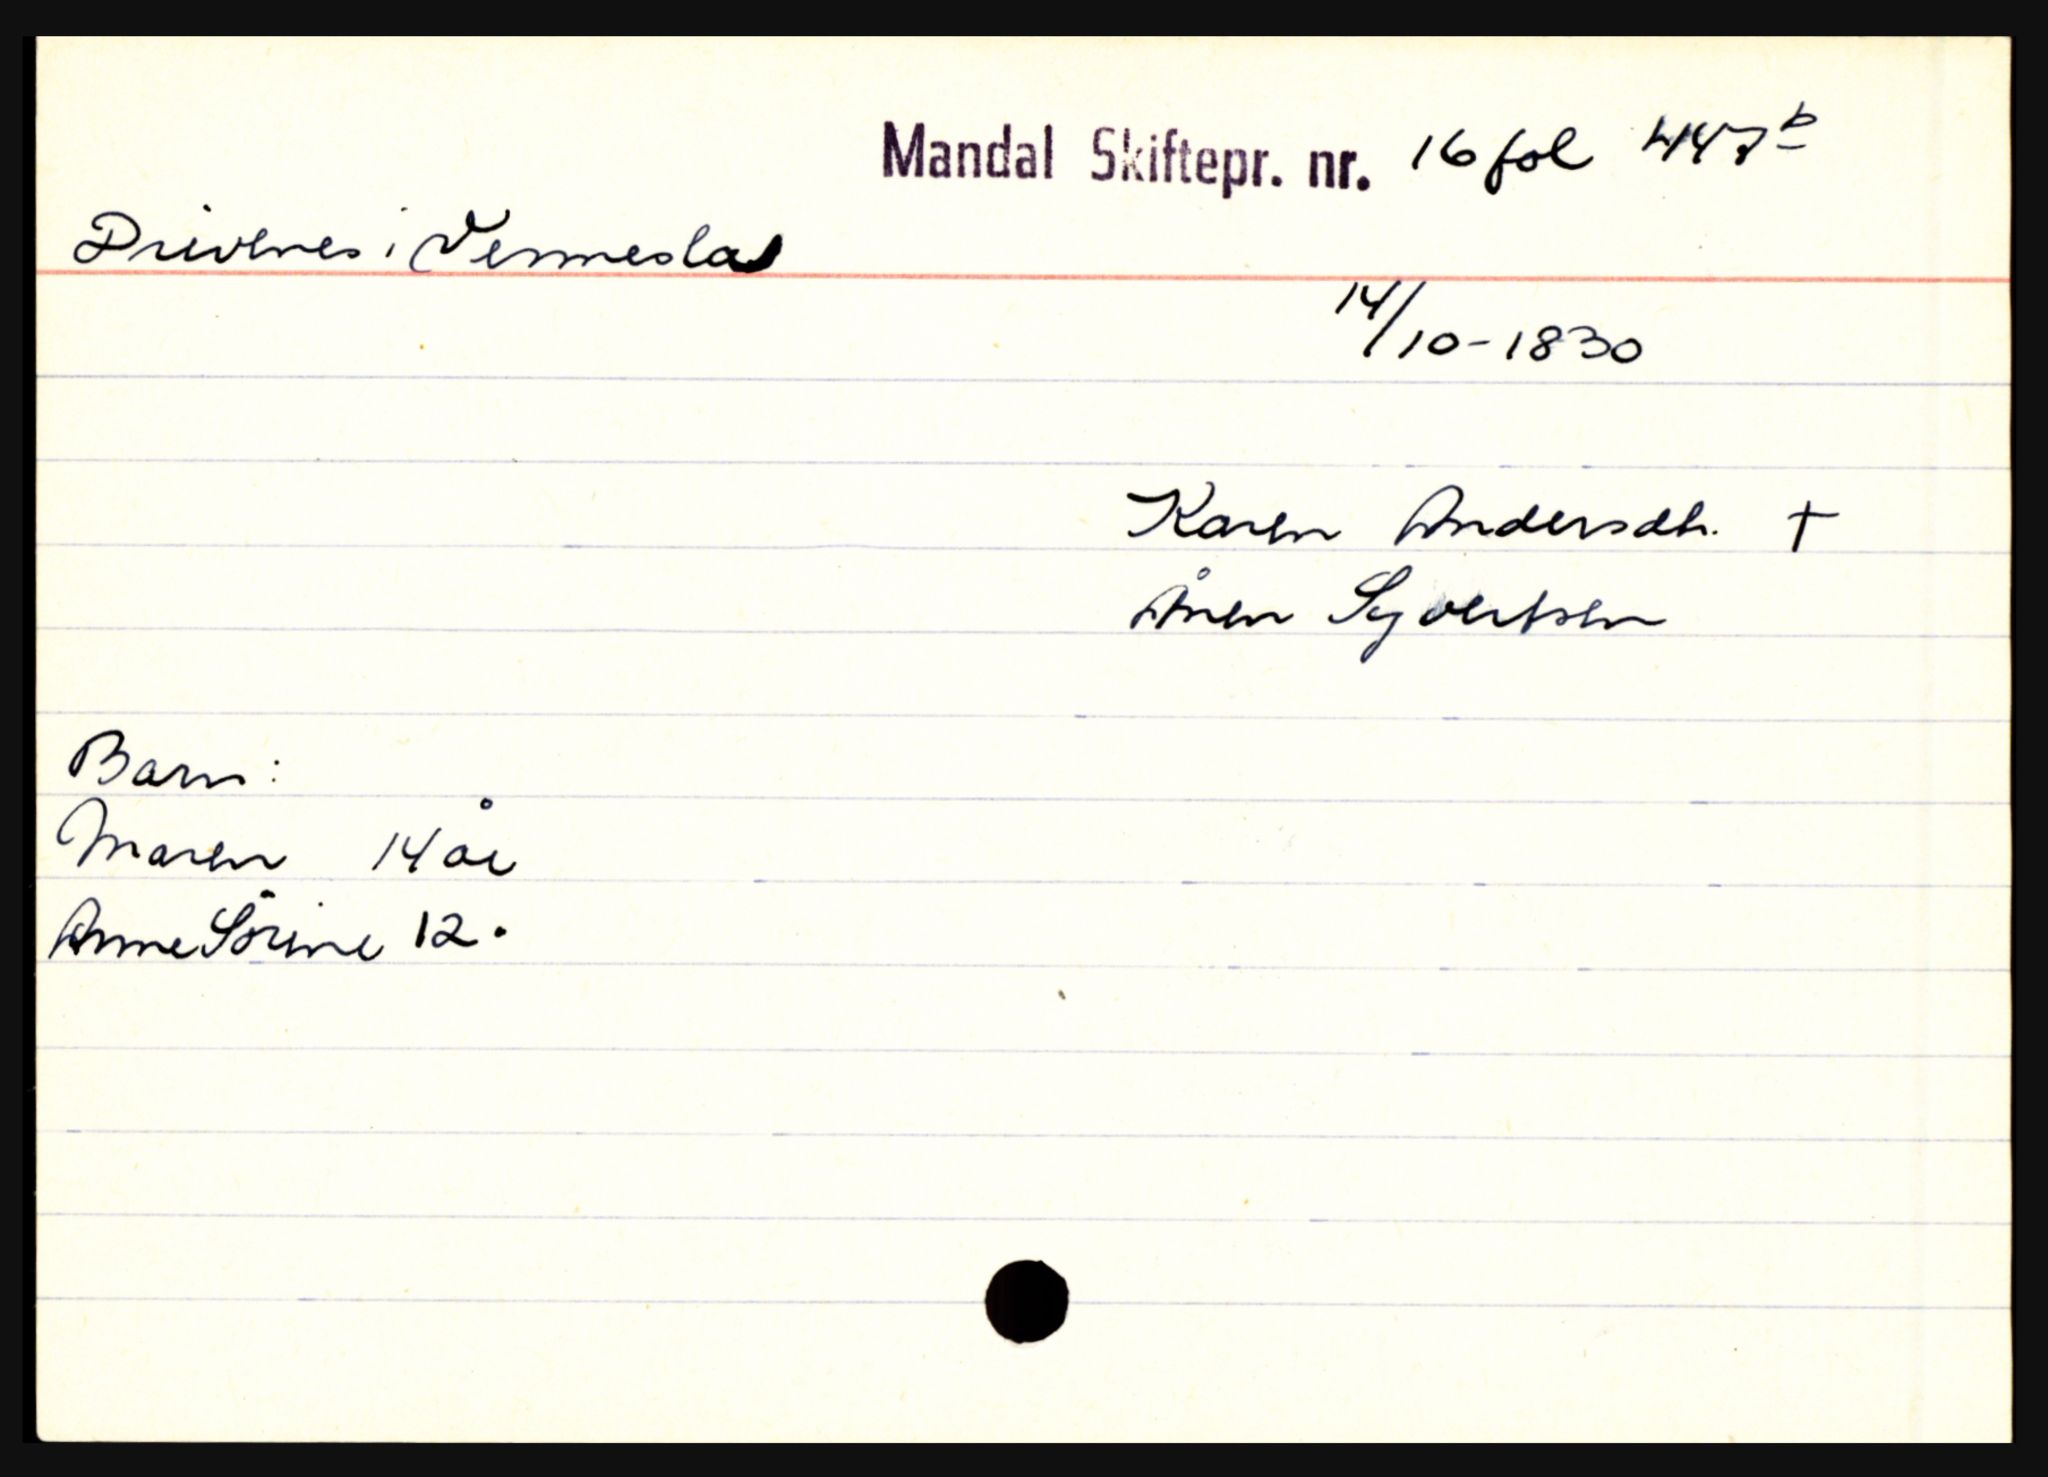 Mandal Skiftepr. nr. 16 fol 447b
Drivenes i Vennesla
14/10-1830
Karen Andersdtr. †
Ånen Syvertsen
Barn:
Maren 14 år
Anne Sörine 12.